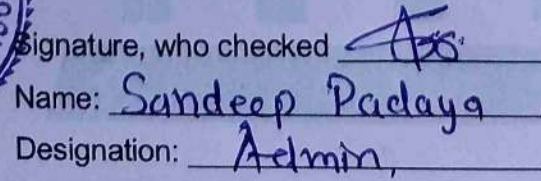 Signature, who checked
Name: Sandeep Padaya
Designation: Admin,